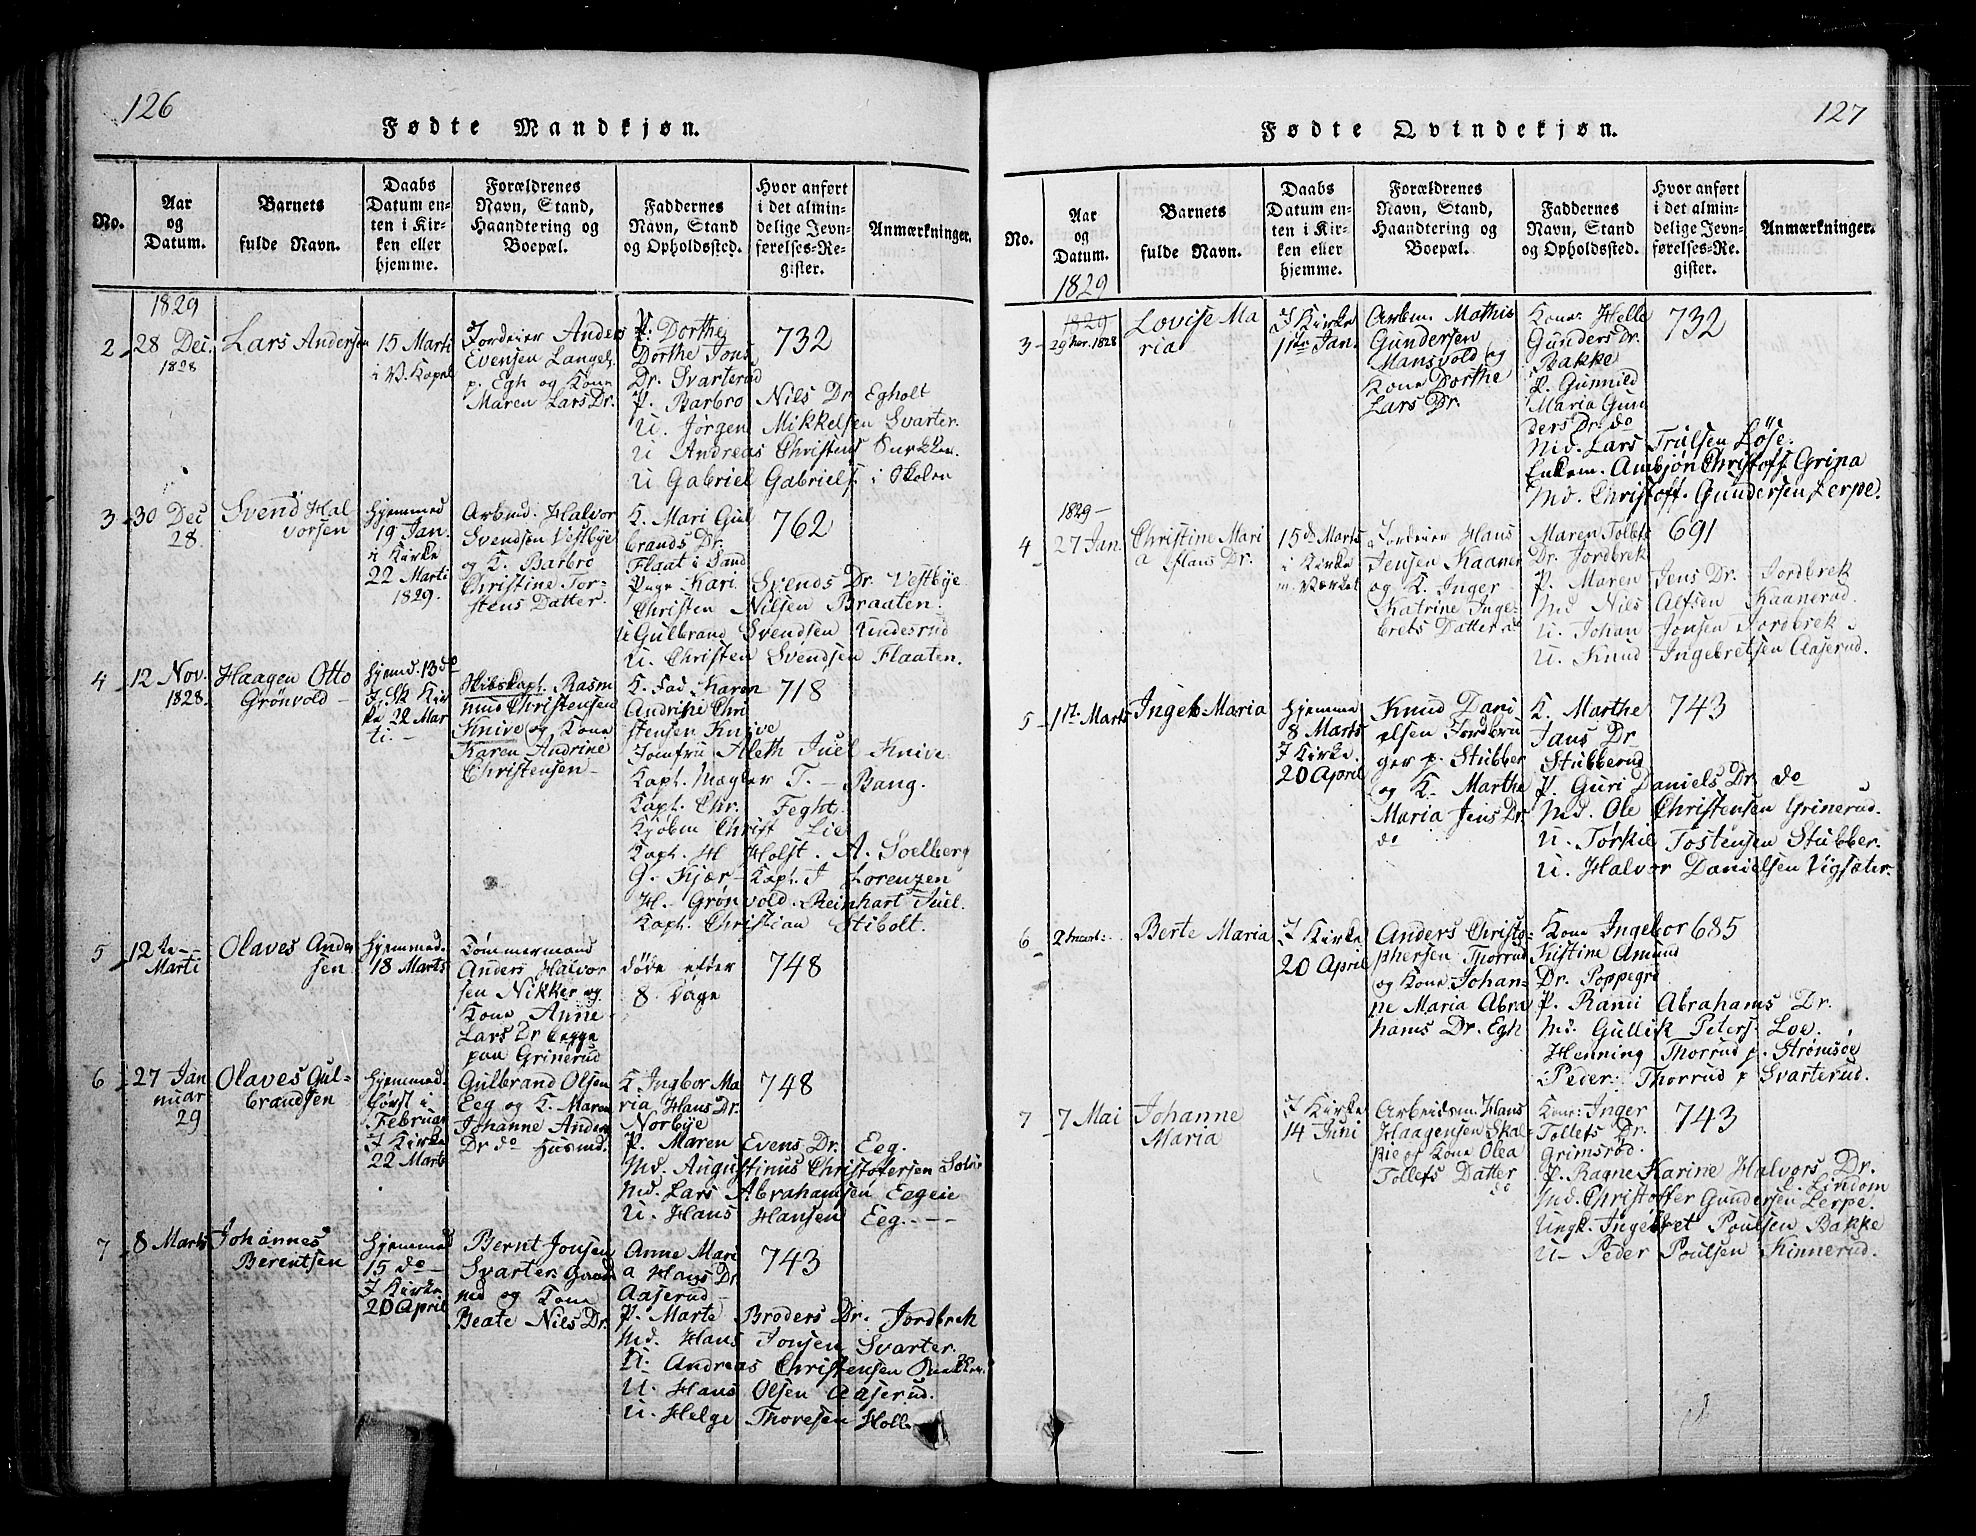 126
Fødte Mandkjøn.
No.
Aar
og
Datum.
Barnets
fulde Navn.
Daabs
Datum en-
ten i Kir-
ken eller
hjemme.
Forældrenes
Navn, Stand,
Haandtering og
Boepæl.
Faddernes
Navn, Stand
og Opholdssted.
Hvor anført
i det almin-
delige Jevn-
førelses-Re-
gister.
Anmærkninger.
1829
2
28 Dec.
1828
Lars Andersen
15 Marti
i V. Kapel
Jordeier Anders
Evensen Langel,
p. Egh og Kone
Maren Lars Dr.
P. Dorthe
Dorthe Jons
Dr. Svarterud
P. Barbro Nils Dr Egholt
U. Jørgen Mikkelsen Svarter.
U Andreas Christens
U Gabriel Gabriels. i Skolen
732
3
30 Dec
28.
Svend Hal
vorsen
Hjemmed
19 Jan.
i Kirke
22 Marti
1829.
Arbmd. Halvor
Svendsen Vestbye
og K. Barbro
Christine Tor-
stens Datter.
K. Mari Gul
brands Dr.
Flaat i Sand
Pige Kari Svends Dr. Vestbye
Christen Nilsen Braaten.
U Gulbrand Svendsen Undesrud
U. Christen Svendsen Flaaten.
762
4
12 Nov.
1828.
Haagen Otto
Grönvold
Hjemd. 13 do
I Sk Kir
ke 22 Mar
ti.
Skibskapt. Rasm
mud Christensen
Knive og Kone
Karen Andrine
Christensen
K. Fad Karen
Andrine Chri
stensen Knive
Jomfru Aleth Juel Knive
Kapt. Mægler T. - Bang.
Kapt. Chr. Feght.
Kjøbm Christ Lie
Kapt. H Holst. A. Soelberg
G. Kjær - Kapt. J Lorenzen
H. Grönvold. Reinhart Juel.
Kapt. Christian Stibolt.
718
5
12 te
Marti
Olaves Ander
sen
Hjemmed.
18 Marts
Tømmermand
Anders Halvor
sen Nikker og
Kone Anne
Lars Dr begge
paa Grinerud
døde efter
8. Dage
748
6
27 Jan
nuar
29
Olaves Gul-
brandsen
Hjemmed.
først i
Februar
I Kirke
22 Marts
Gulbrand Olsen
Eeg og K. Maren
Johanne Anders
Dr do Husmd.
K Ingbor Ma
ria Hans Dr.
Norbye
P. Maren Evens Dr. Eeg.
Md. Augustinus Christofersen
Md. Lars Abrahamsen Eegeie
U. Hans Hansen Eeg.
748
7
8 Marts
Johannes
Berentsen
Hjemmed
15 do
I Kirke
20 April
Bernt Jonsen
Svarter: Gaard
md og Kone
Beate Nils Dr.
Anne Mari
a Hans Dr
Aaserud
P. Marte Broders Dr. Jordbrek
Md. Hans Jonsen Svarter.
U. Andreas Christensen
U. Hans Olsen Aaserud.
U. Helge Thoresen Holl
743
127
Fødte Qvindekjøn.
No.
Aar
og
Datum.
Barnets
fulde Navn.
Daabs
Datum en-
ten i Kir-
ken eller
hjemme.
Forældrenes
Navn, Stand,
Haandtering og
Boepæl.
Faddernes
Navn, Stand
og Opholdssted.
Hvor anført
i det almin-
delige Jevn-
førelses-Re-
gister.
Anmærkninger.
1829
1829
3
1828
Lovise Ma
ria
I Kirke
11te Jan.
Arbm. Mathis
Gundersen
Mansvold og
Kone Dorthe
Lars Dr.
Kone: Helle
Gunders Dr.
Bakke
P. Gunnild
Maria Gun
ders Dr. do
Md. Lars Trulsen Löse.
Enkem. Ambjön Christoff. Gripa
Md. Christoff. Gundersen Lerpe.
732
1829
4
27 Jan.
Christine Mari
a Hans Dr.
15de Marts
i Kirke
v. Værket
Jordeier Hans
Jensen Kaaner
og K. Inger
Katrine Inge-
brets Datter do
Maren Tollefs
Dr. Jordbrek
P. Maren Jens Dr. Jordbrek
Md Nils Alfsen Kaanerud.
U. Johan Jonsen Jordbrek
U. Knud Ingebretsen Aaserud.
691
5
1st Marts
Ingeb Maria
Hjemme
8 Marts
I Kirke
20 April
Knud Dani
elsen Jordbru
ger p. Stubber
og K. Marthe
Maria Jens Dr
do
K. Marthe
Jans Dr
Stubberud
P. Guri Daniels Dr. do
Md. Ole Christensen Grinerud.
U. Törkil Tostensen Stubber.
U. Halvor Danielsen Vigsæter
743
6
2 Mart:
Berte Maria
I Kirke
20 April
Anders Christo-
phersen Thorrud
og Kone Johan-
ne Maria Abra
hams Dr. Egh
Kone Ingebor
Kistine Amund
Dr. Poppegrd
P. Rani Abrahams Dr.
Md. Gullik Peters. Loe.
Henning Thorrud p. Strømsöe
Peder: Thorrud p Svarterud.
685
7
7 Mai
Johanne
Maria
I Kirke
14 Juni
Arbeidsm. Hans
Haagensen Skal-
rie og Kone Olea
Tollefs Datter
do
Kone: Inger
Tollefs Dr.
Grimsröd.
P. Ragne Karine Halvors Dr.
Lindom
Md. Christoffer Gundersen Lerpe.
Ungk. Ingebret Poulsen Bakke
U- Peder Poulsen Kinnerud.
743